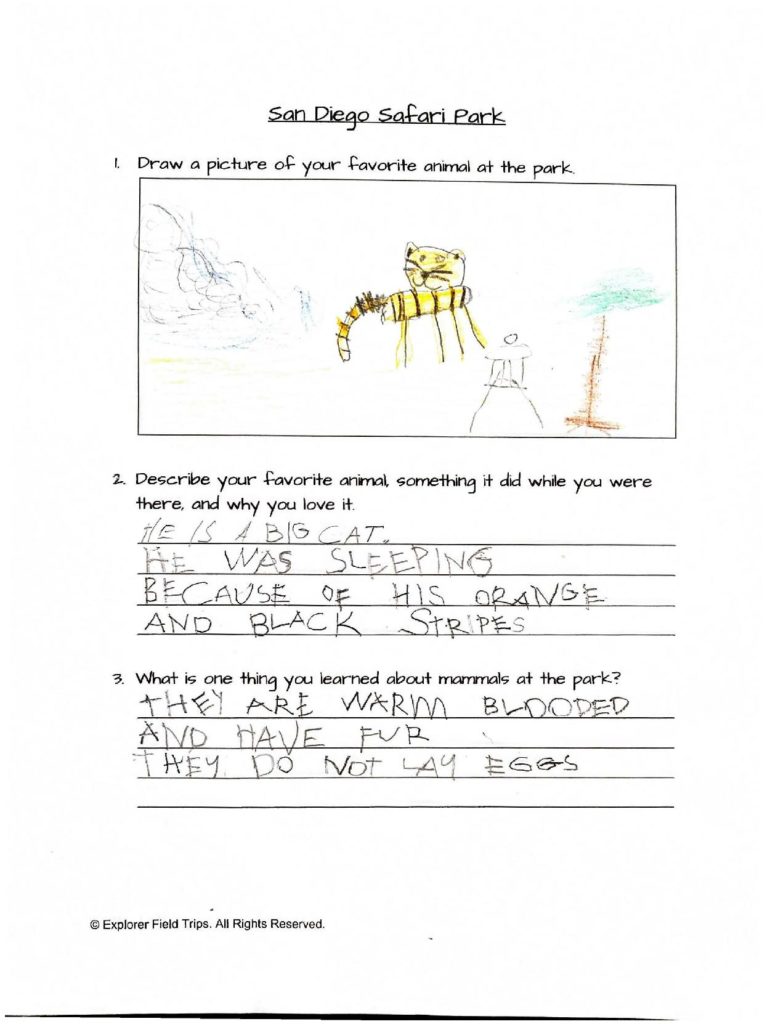 San Diego Safari Park
1. Draw a picture of your favorite animal at the park.
2. Describe your favorite animal, something it did while you were
there, and why you love it.
HE IS A BIG CAT.
HE WAS SLEEPING
BECAUSE OF HIS ORANGE
AND BLACK STRIPES
3. What is one thing you learned about mammals at the park?
THEY ARE WARM BLOODED
AND HAVE FUR
THEY DO NOT LAY EGGS
© Explorer Field Trips. All Rights Reserved.